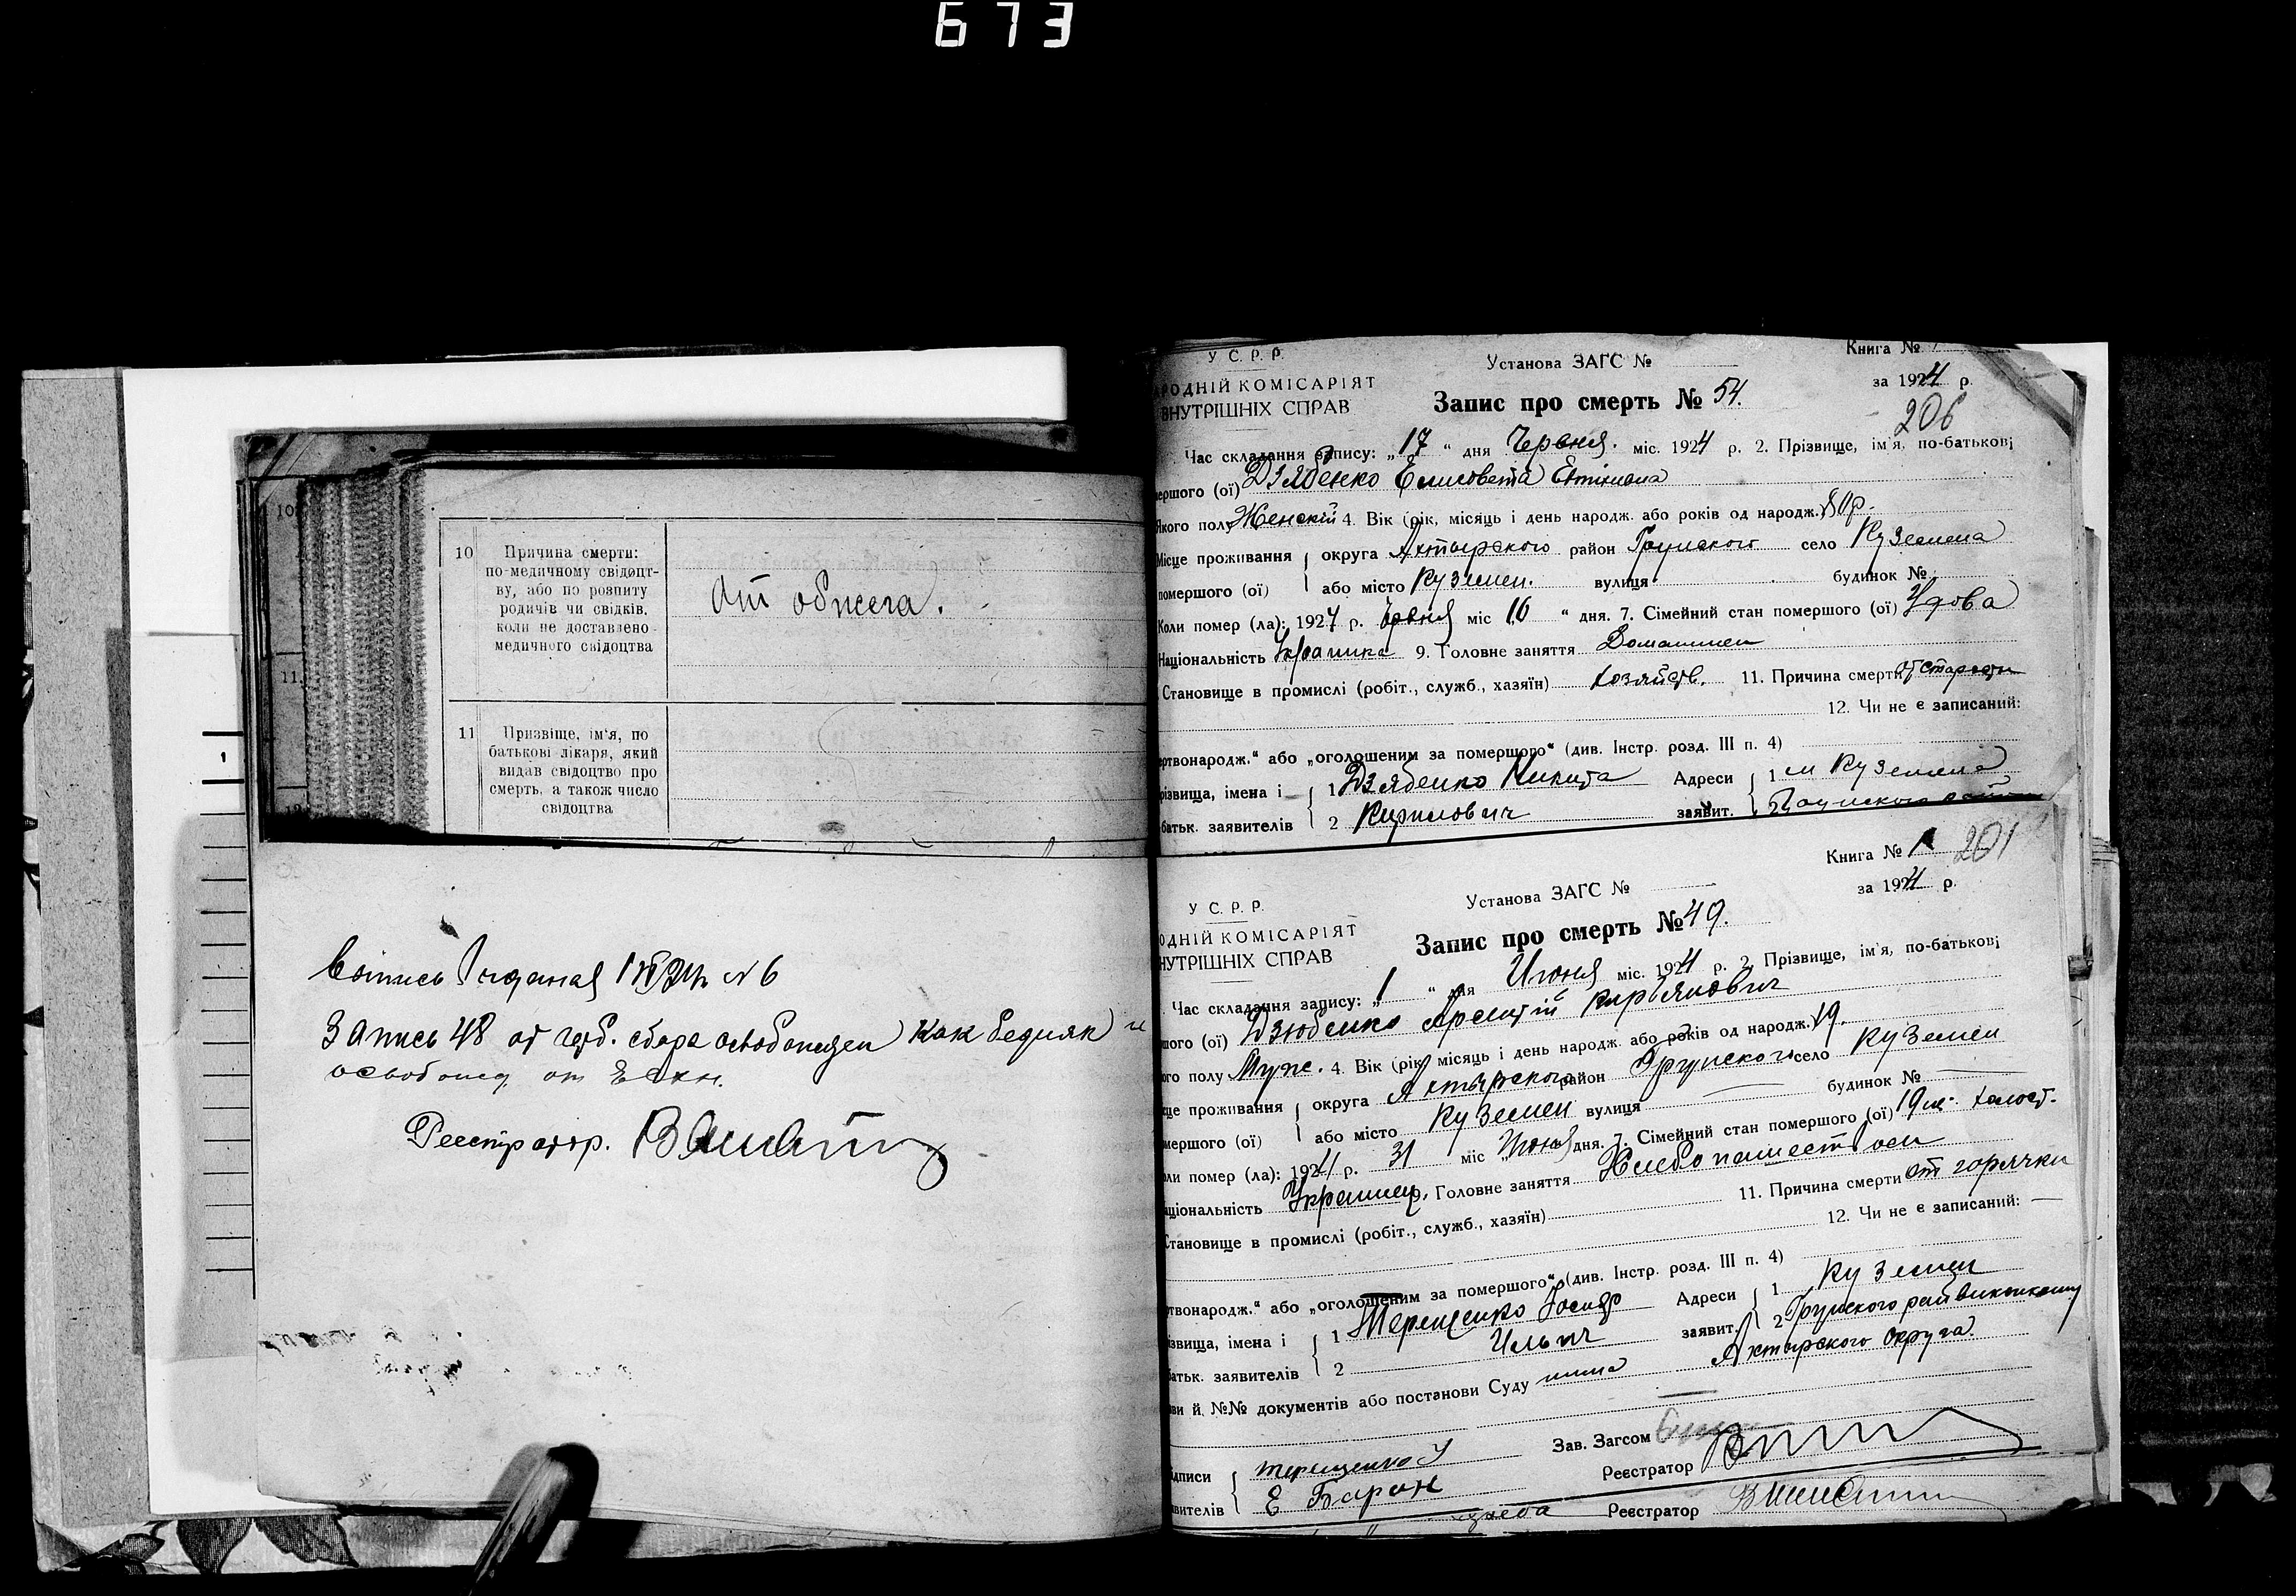 673
10
10
Причина смерти:
по-медичному свідоцт-
ву, або по розпиту
родичів чи свідків,
коли не доставлено
медичного свідоцтва
Ат обжега.
11.
11
Призвіще, ім'я, по
батькові лікаря, який
видав свідоцтво про
смерть, а також число
свідоцтва
1
Запись 48 от герб. сбора освобожден как бедняк и
освобожд. от
Реестратор.
У С. Р. Р.
РОДНІЙ КОМІСАРІЯТ
ВНУТРІШНІХ СПРАВ
Установа ЗАГС №
Книга №
за 1924 р.
Запис про смерть № 54.
206
Час складання запису: „17 “ дня Червня. міс. 1924 р. 2. Прізвище, ім'я, по-батькові
мершого (ої) Дзябенко Елисовета
Якого полу Женскій 4. Вік (рік, місяць і день народж. або років од народж.) 80р.
Місце проживання округа Ахтырского район Грунского село Куземена
помершого (ої) або місто Куземен. вулиця будинок №
Коли помер (ла): 1924 р. Червня міс 16 “ дня. 7. Сімейний стан помершого (ої) Удова
Національність Украинка 9. Головне заняття Домашнем
Становище в промислі (робіт., служб., хазяїн) хозяйств. 11. Причина смерти от старости
12. Чи не є записаний:
ертвонародж.“ або „оголошеним за помершого“ (див. Інстр. розд. III п. 4)
різвища, імена і 1 Дзябенко Никита Адреси 1 м Куземена
батьк. заявителів 2 Кирилович заявит. 2 Грунского района
Книга № 1 201
за 1924 р.
У С. Р. Р.
ОДНІЙ КОМІСАРІЯТ
НУТРІШНІХ СПРАВ
Установа ЗАГС №
Запис про смерть № 49.
Час складання запису: „1 “ дня Июня міс. 1924 р. 2. Прізвище, ім'я, по-батькові
шого (ої) Дзюбенко Арсентій Кирьянович
ого полу Мужс. 4. Вік (рік, місяць і день народж. або років од народж.) 19.
це проживання округа Ахтырского район Грунского село Куземен
мершого (ої) або місто Куземен вулиця будинок №
ли помер (ла): 1924 р. 31 міс Июня дня. 7. Сімейний стан помершого (ої) 19 холост.
ціональність Украинец. Головне заняття Хлебопашеством
Становище в промислі (робіт., служб., хазяїн) 11. Причина смерти от горячки
12. Чи не є записаний: —
ртвонародж.“ або „оголошеним за помершого“ (див. Інстр. розд. III п. 4)
ізвища, імена і 1 Терещенко Иосиф Адреси 1 Куземен
батьк. заявителів 2 Ильич заявит. 2 Грунского райвиконкому
Ахтырского округа.
ви й. №№ документів або постанови Суду
Зав. Загсом
Реєстратор
дписи Терещенко
вителів Е Баран
Реєстратор